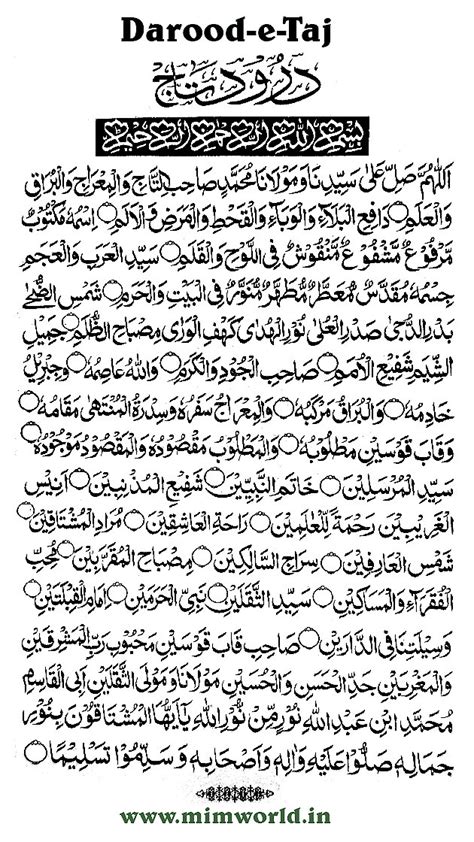 Darood-e-Taj
درود تاج
بِسْمِ اللهِ الرَّحْمٰنِ الرَّحِيْمِ
اَللّٰهُمَّ صَلِّ عَلٰى سَيِّدِنَا وَمَوْلَانَا مُحَمَّدٍ صَاحِبِ التَّاجِ وَالْمِعْرَاجِ وَالْبُرَاقِ
وَالْعَلَمِ ۝ دَافِعِ الْبَلَآءِ وَالْوَبَآءِ وَالْقَحْطِ وَالْمَرَضِ وَالْاَلَمِ ۝ اِسْمُهٗ مَكْتُوْبٌ
مَّرْفُوْعٌ مَّشْفُوْعٌ مَّنْقُوْشٌ فِى اللَّوْحِ وَالْقَلَمِ ۝ سَيِّدِ الْعَرَبِ وَالْعَجَمِ
جِسْمُهٗ مُقَدَّسٌ مُّعَطَّرٌ مُّطَهَّرٌ مُّنَوَّرٌ فِى الْبَيْتِ وَالْحَرَمِ ۝ شَمْسِ الضُّحٰى
بَدْرِ الدُّجٰى صَدْرِ الْعُلٰى نُوْرِ الْهُدٰى كَهْفِ الْوَرٰى مِصْبَاحِ الظُّلَمِ ۝ جَمِيْلِ
الشِّيَمِ شَفِيْعِ الْاُمَمِ ۝ صَاحِبِ الْجُوْدِ وَالْكَرَمِ ۝ وَاللهُ عَاصِمُهٗ ۝ وَجِبْرِيْلُ
خَادِمُهٗ ۝ وَالْبُرَاقُ مَرْكَبُهٗ ۝ وَالْمِعْرَاجُ سَفَرُهٗ وَسِدْرَةُ الْمُنْتَهٰى مَقَامُهٗ ۝
وَقَابَ قَوْسَيْنِ مَطْلُوْبُهٗ ۝ وَالْمَطْلُوْبُ مَقْصُوْدُهٗ وَالْمَقْصُوْدُ مَوْجُوْدُهٗ ۝
سَيِّدِ الْمُرْسَلِيْنَ ۝ خَاتَمِ النَّبِيِّيْنَ ۝ شَفِيْعِ الْمُذْنِبِيْنَ ۝ اَنِيْسِ
الْغَرِيْبِيْنَ رَحْمَةٍ لِّلْعٰلَمِيْنَ ۝ رَاحَةِ الْعَاشِقِيْنَ ۝ مُرَادِ الْمُشْتَاقِيْنَ ۝
شَمْسِ الْعَارِفِيْنَ ۝ سِرَاجِ السَّالِكِيْنَ ۝ مِصْبَاحِ الْمُقَرَّبِيْنَ ۝ مُحِبِّ
الْفُقَرَآءِ وَالْمَسَاكِيْنَ ۝ سَيِّدِ الثَّقَلَيْنِ ۝ نَبِىِّ الْحَرَمَيْنِ ۝ اِمَامِ الْقِبْلَتَيْنِ ۝
وَسِيْلَتِنَا فِى الدَّارَيْنِ ۝ صَاحِبِ قَابَ قَوْسَيْنِ مَحْبُوْبِ رَبِّ الْمَشْرِقَيْنِ
وَالْمَغْرِبَيْنِ جَدِّ الْحَسَنِ وَالْحُسَيْنِ مَوْلَانَا وَمَوْلَى الثَّقَلَيْنِ اَبِى الْقَاسِمِ
مُحَمَّدِ ابْنِ عَبْدِ اللهِ نُوْرٍ مِّنْ نُّوْرِ اللهِ يٰاَيُّهَا الْمُشْتَاقُوْنَ بِنُوْرِ
جَمَالِهٖ صَلُّوْا عَلَيْهِ وَاٰلِهٖ وَاَصْحَابِهٖ وَسَلِّمُوْا تَسْلِيْمًا ۝
www.mimworld.in